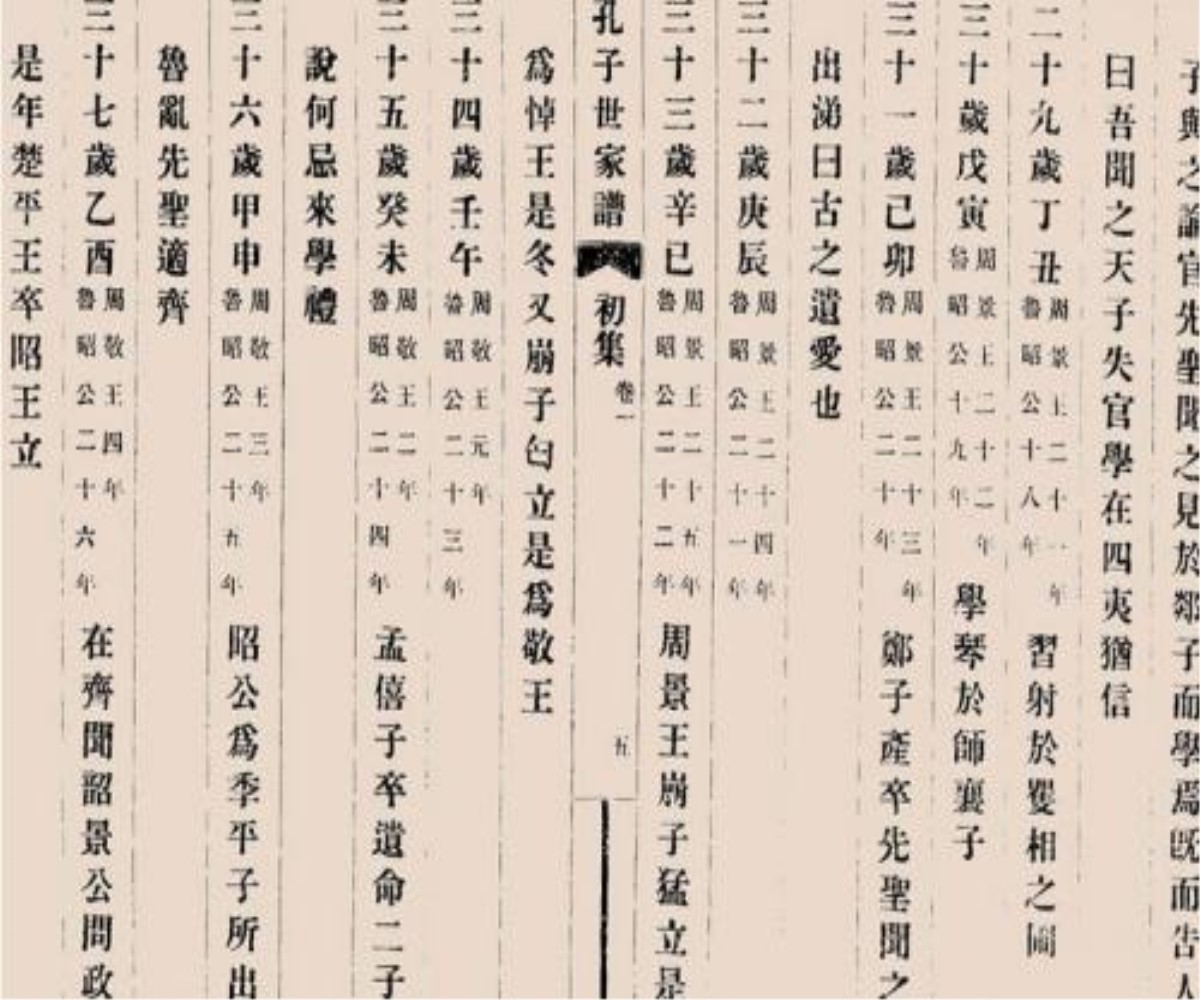 子與之論官先聖聞之見於郯子而學焉既而告人
曰吾聞之天子失官學在四夷猶信
二十九歲丁丑周景王二十一年魯昭公十八年習射於矍相之圃
三十歲戊寅周景王二十二年魯昭公十九年學琴於師襄子
三十一歲己卯周景王二十三年魯昭公二十年鄭子產卒先聖聞之
出涕曰古之遺愛也
三十二歲庚辰周景王二十四年魯昭公二十一年
三十三歲辛巳周景王二十五年魯昭公二十二年周景王崩子猛立是
孔子世家譜 初集 卷一 五
爲悼王是冬又崩子匄立是爲敬王
三十四歲壬午周敬王元年魯昭公二十三年
三十五歲癸未周敬王二年魯昭公二十四年孟僖子卒遺命二子
說何忌來學禮
三十六歲甲申周敬王三年魯昭公二十五年昭公爲季平子所出
魯亂先聖適齊
三十七歲乙酉周敬王四年魯昭公二十六年在齊聞韶景公問政
是年楚平王卒昭王立